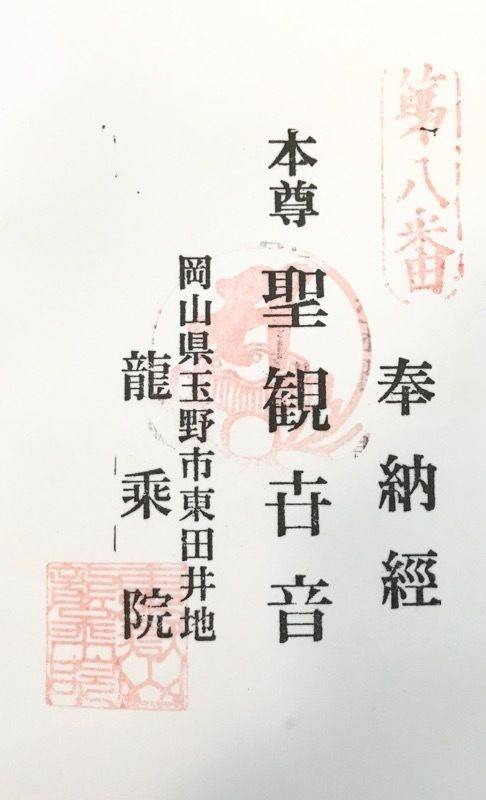 第八番
奉納經
本尊 聖観音音
岡山県玉野市東田井地
龍乗院